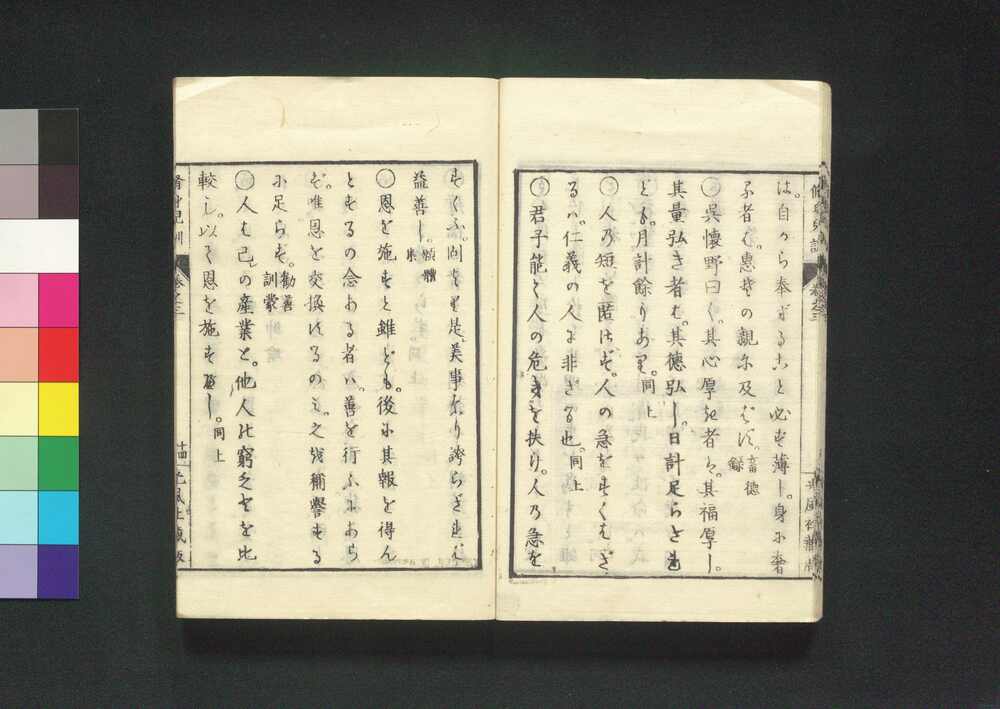 は。自から奉ずること必ず薄し。身に奢
る者は。惠其の親に及ばず。畜德録
○呉懷野曰く。其心厚き者は。其福厚し。
其量弘き者は。其德弘し。日計足らされ
ども。月計餘りあり。同上
○人の短を匿はず。人の急をすくはざ
るハ。仁義の人に非ざる也。同上
○君子能く人の危きを扶け。人の急を
すくふ。固より是美事なり誇らざれば
益善し。
○恩を施すと雖ども。後に其報を得ん
とするの念ある者ハ。善を行ふにあら
ず。唯恩を交換するのミ。之を稱譽する
に足らず。勸善訓蒙
○人は己の産業と。他人の窮乏とを比
較し。以て恩を施すべし。同上